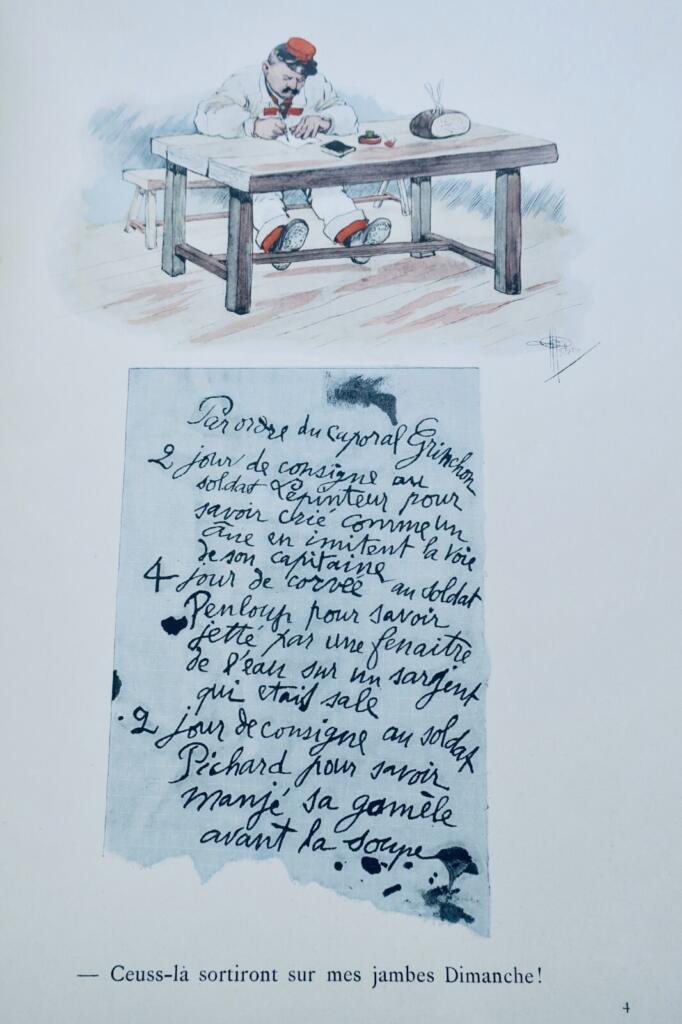 Par ordre du caporal Grinchon
2 jour de consigne au
soldat Lépinteur pour
savoir crié comme un
âne en imitent la voie
de son capitaine
4 jour de corvée au soldat
Penloup pour savoir
jetté par une fenaitre
de l'eau sur un sargent
qui etais sale
2 jour de consigne au soldat
Pichard pour savoir
manjé sa gamèle
avant la soupe
— Ceuss-là sortiront sur mes jambes Dimanche!
4